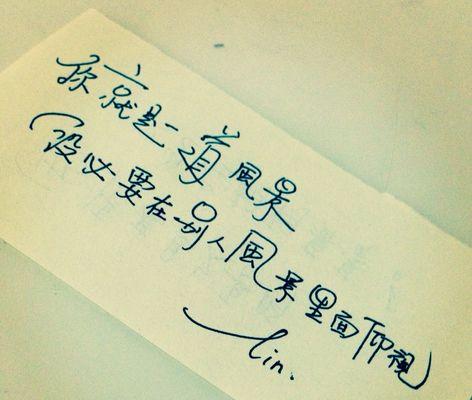 你就是一道風景
(沒必要在别人風景里面仰視)
lin.